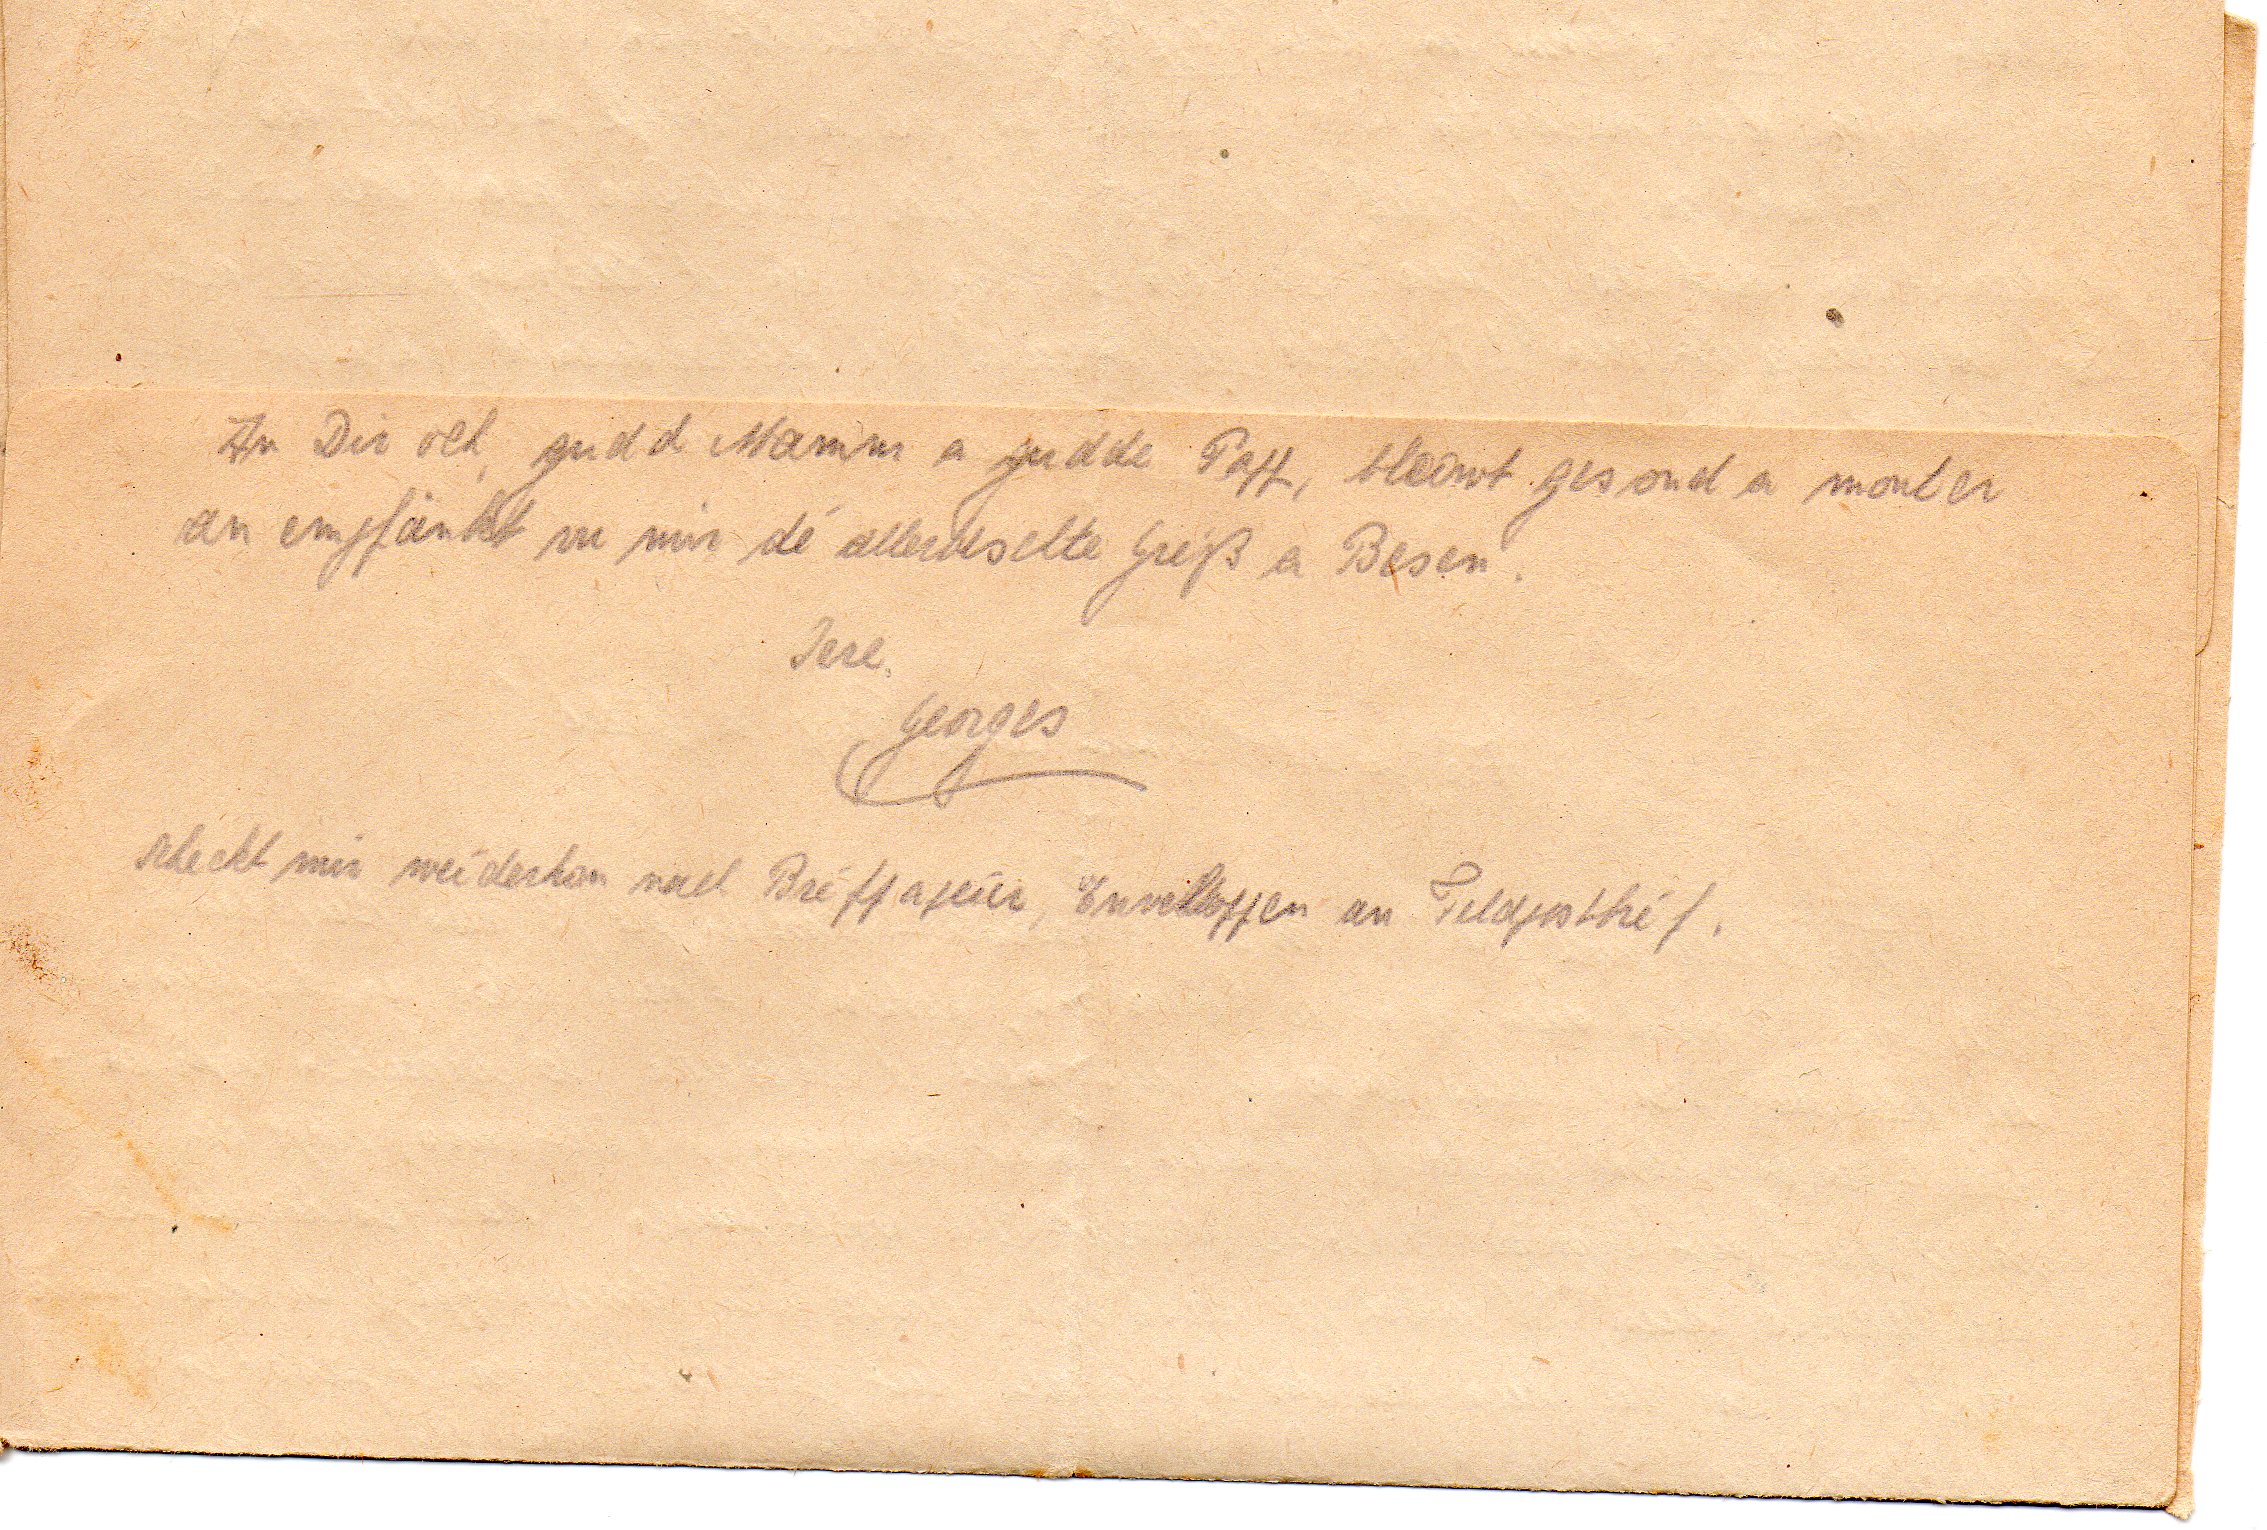 An Dir och, gudd Mamm a gudde Papp, bleiwt gesond a monter
an empfänkt vu mir dé allerbeschte Gréiß a Besen.
Iere
Georges
scheckt mir weiderhan nach Bréifpapeier, Enveloppen an Feldpostbréf.